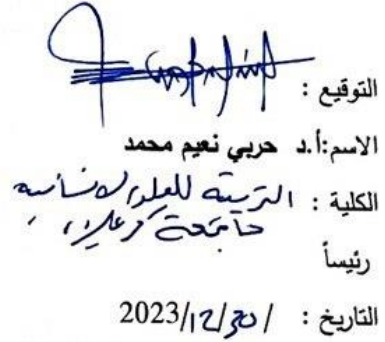 التوقيع :
الاسم:أ.د حربي نعيم محمد
الكلية : التربية للعلوم الانسانية
جامعة كربلاء
رئيساً
التاريخ : / 30/12/2023